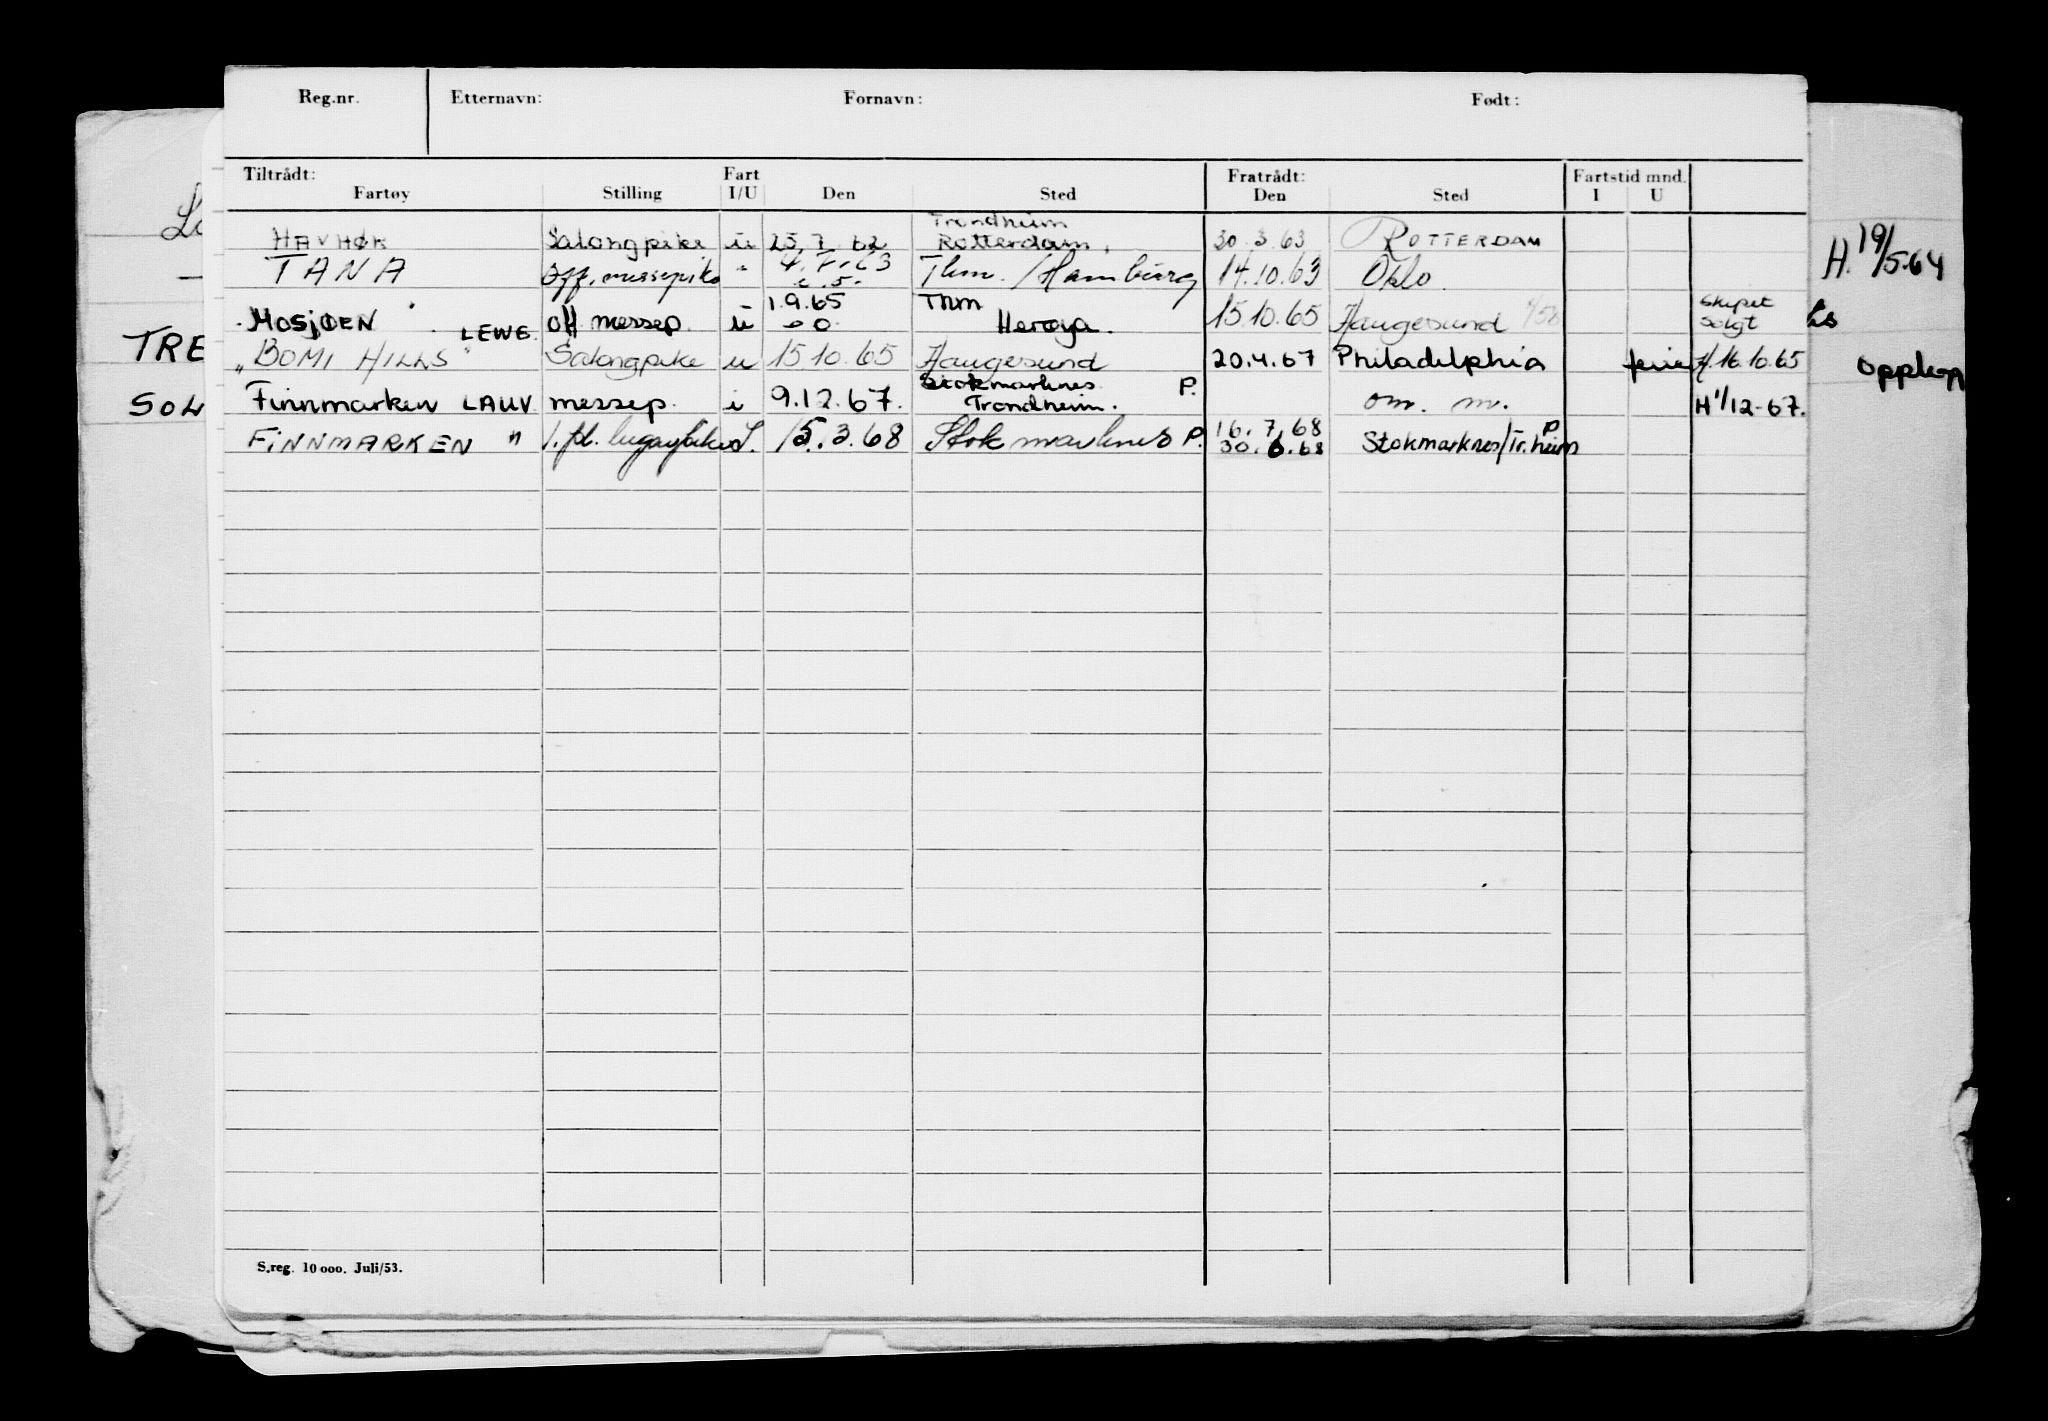 Reg.nr. Etternavn: Fornavn: Født:
Tiltrådt: Fart Fratrådt: Fartstid mnd.
Fartøy Stilling I/U Den Sted Den Sted I U
Trondheim
HAVHØK Salongpike u 25.7.62 Rotterdam. 30.3.63 ROTTERDAM
TANA Off.messepike " 4.7.63 Thm. / Hamburg 14.10.63 Oslo.
1.9.65 Thm Skipet
MOSJØEN LEWE. Off messep. u Herøya. 15.10.65 Haugesund solgt
"BOMI HILLS" Salongpike u 15.10.65 Haugesund 20.4.67 Philadelphia ferie H.16.10.65
Stokmarknes P.
Finnmarken LAUV. messep. i 9.12.67. Trondheim. om. m. H 1/12-67.
16.7.68 P
FINNMARKEN " 1.kl. lugarpike I. 15.3.68 Stokmarknes P. 30.6.68 Stokmarknes/Tr.heim
H. 19/5.64
TRE
SOL
S.reg. 10 000. Juli/53.